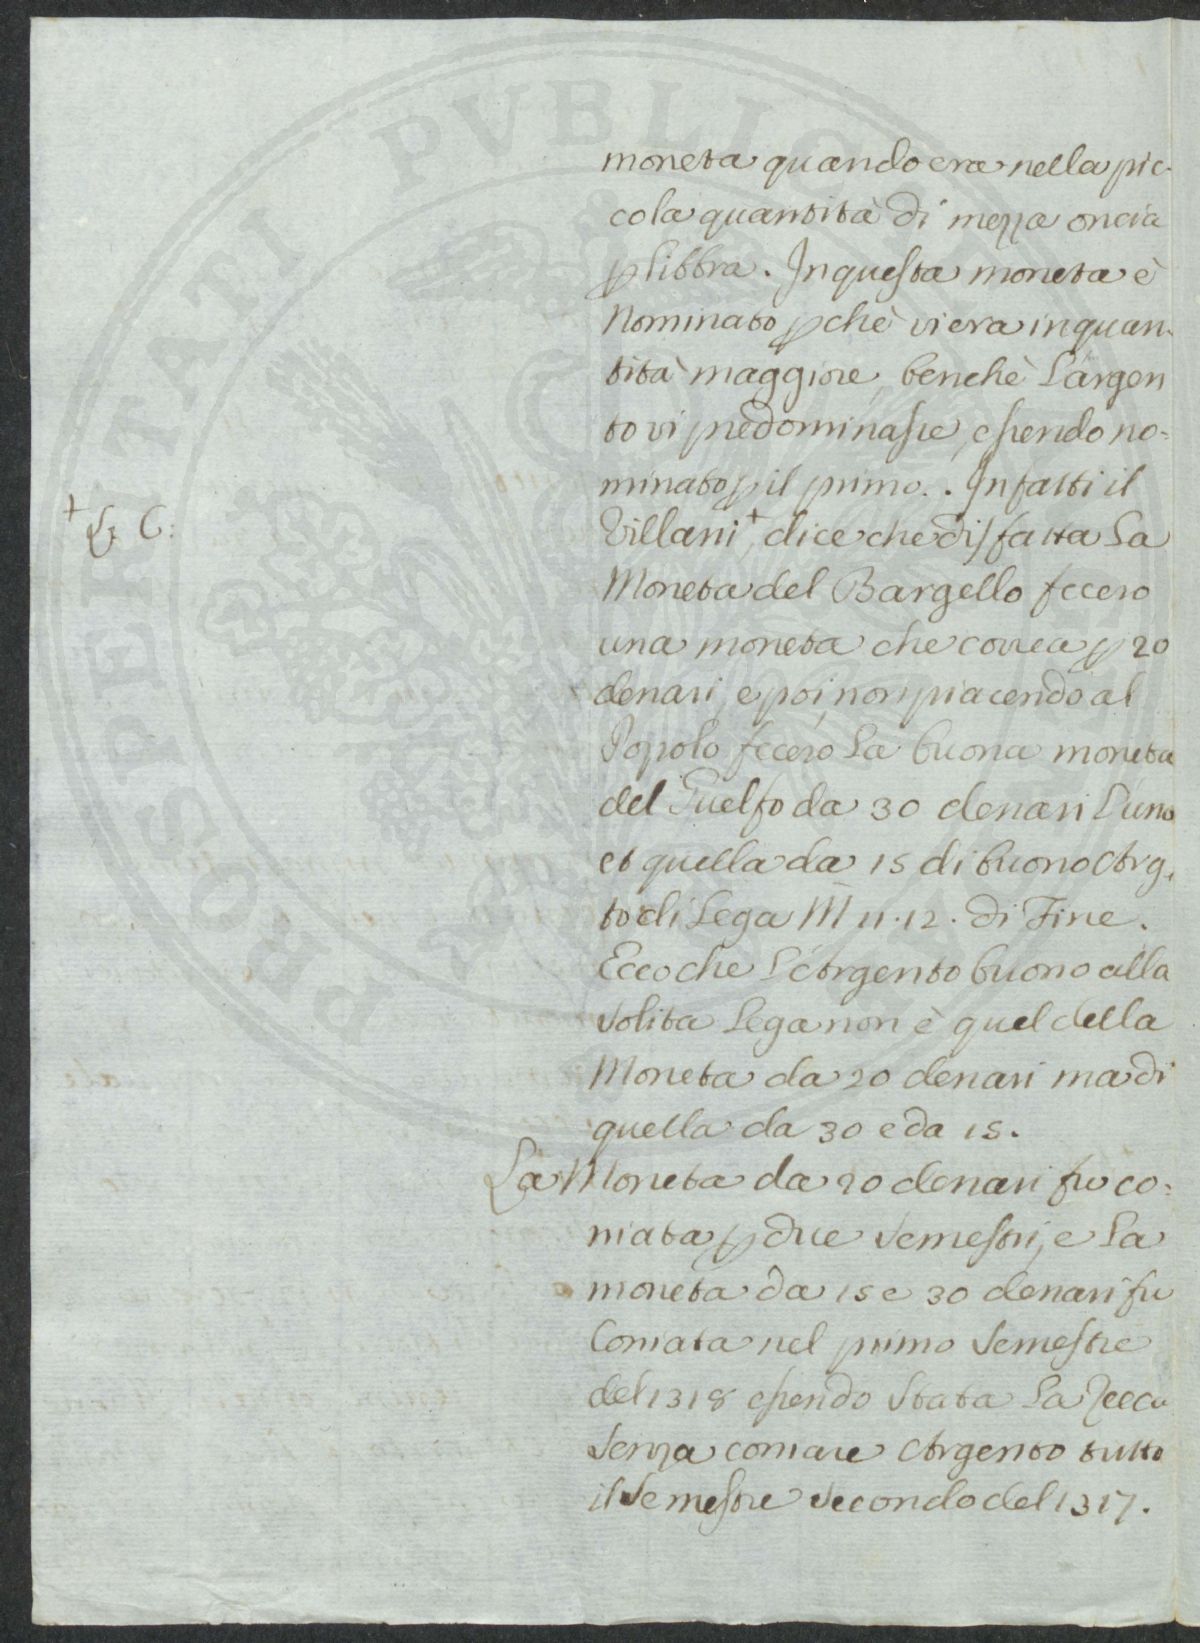 moneta quando era nella pic-
cola quantità di mezza oncia
p libbra. In questa moneta è
Nominato pchè vi era in quan-
tità maggiore, benchè L'argen
to vi predominasse, essendo no=
minato p il primo. . Infatti il
Villani + dice che disfatta La
+ L. C:
Moneta del Bargello fecero
una moneta che correa p 20
denari, e poi non piacendo al
Popolo fecero La buona moneta
del Guelfo da 30 denari L'uno
et quella da 15 di buono Arg.
to di Lega M 11.12. di Fine.
Ecco che L'Argento buono alla
solita Lega non è quel della
Moneta da 20 denari ma di
quella da 30 e da 15.
La Moneta da 20 denari fu co=
niata p due semestri, e La
moneta da 15 e 30 denari fu
Coniata nel primo Semestre
del 1318 essendo stata La Zecca
senza coniare Argento tutto
il Semestre secondo del 1317.
PROSPERITATI PVBLICAE